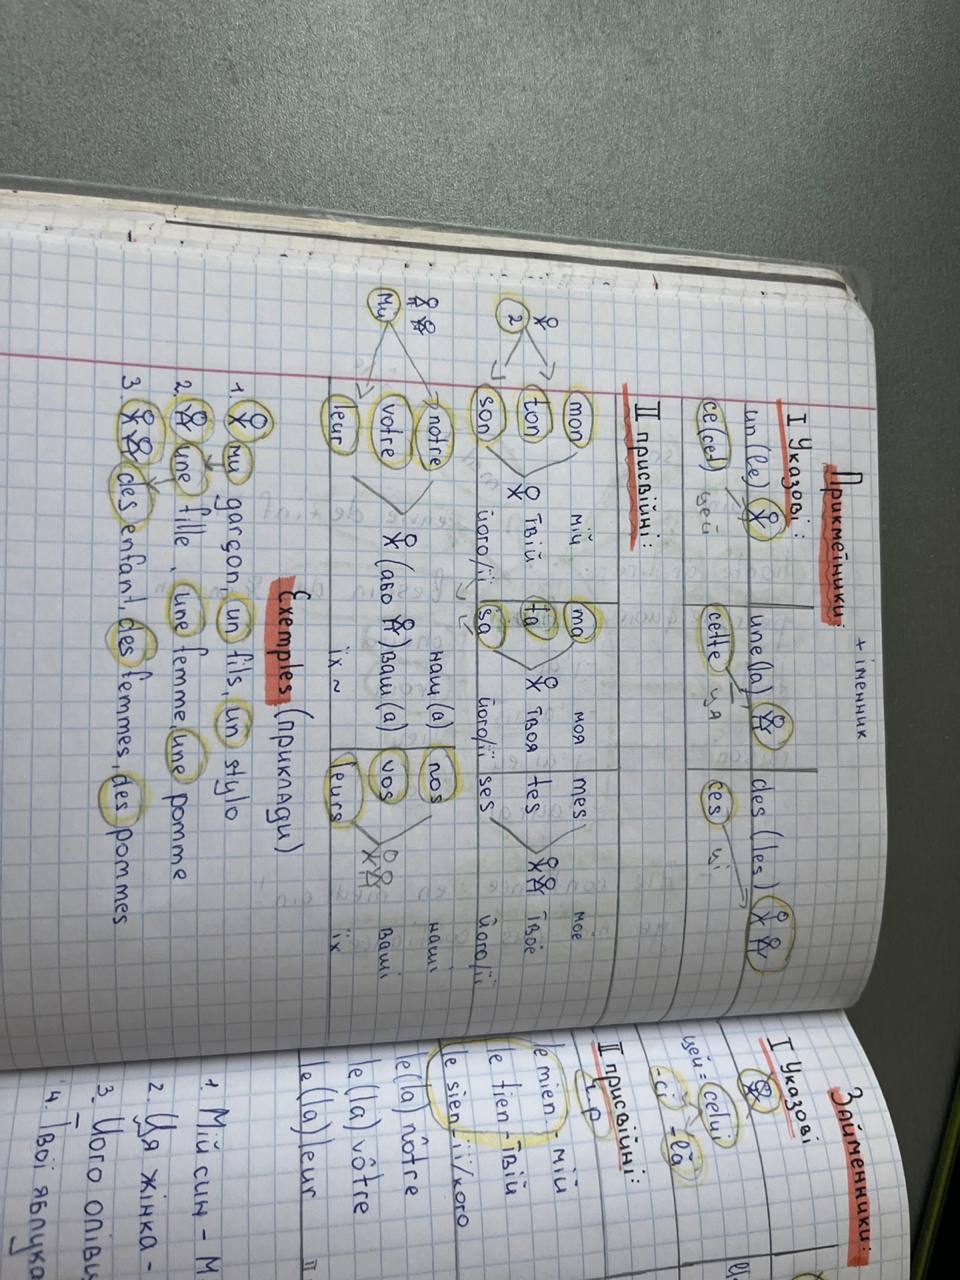 Прикметники: + іменник
І Указові:
un (le) une (la) des (les)
ce (cet) цей cette ця ces ці
ІІ присвійні:
mon мій ma моя mes моє
2 ton твій ta твоя tes твоє
son його/її sa його/її ses його/її
notre наш (а) nos наші
Ми votre (або ) ваш (а) vos ваші
leur їх ~ leurs їх
Exemples (приклади)
1. garçon, un fils, un stylo
2. une fille, une femme, une pomme
3. des enfant, des femmes, des pommes
Займенники:
І Указові
цей = celui
-ci -là
ІІ присвійні:
le mien - мій
le tien - твій
le sien - її/його
le (la) nôtre
le (la) vôtre
le (la) leur
1. Мій син - М
2. Ця жінка -
3. Його олівц
4. Твої яблука